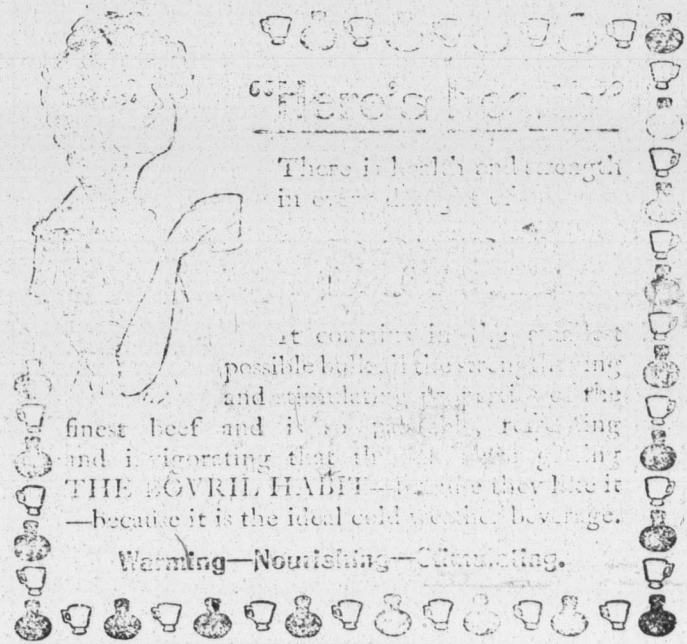 "Here's health"
There is health and strength
in every of
It contains in the smallest
possible bulk all the strengthening
and stimulating properties of the
finest beef and is so refreshing
and invigorating that
THE BOVRIL HABIT—because they like it
—because it is the ideal cold weather beverage.
Warming—Nourishing—Stimulating.